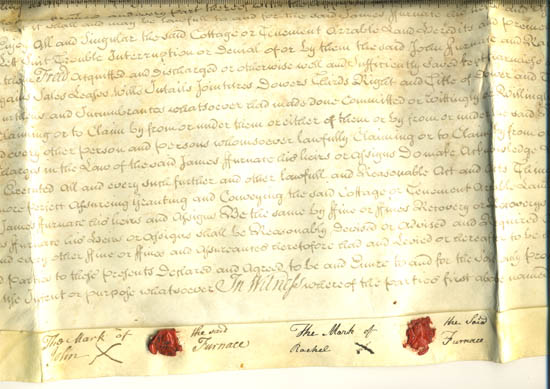 it shall and may be lawfull to and for the said James ffurnace his heirs
Enjoy All and Singular the said Cottage or Tenement Arrable Land
Let Suit Trouble Interruption or Denial of or by them the said John ffurnace and
Freed Acquitted and Discharged or otherwise well and sufficiently saved
Sales Leases Wills Intails Joyntures Dowers Thirds Right and Title of Dower
and Incumbrances whatsoever had made done Committed or wittingly or Willingly
Claiming or to Claim by from or under them or either of them or by from or under
every other Person and Persons whomsoever lawfully Claiming or to Claim by from or
in the Law of the said James ffurnace his heirs or Assigns Do make Acknowledge
Executed All and every such further and other lawfull and Reasonable Act and
perfect Assureing Granting and Conveying the said Cottage or Tenement Arrable Land
James ffurnace his heirs and Assigns Be the same by ffine or ffines Recovery or Recoverys
ffurnace his heirs or Assigns shall be Reasonably Devised or Advised and Required
and every other ffine or ffines and Assurances heretofore had and Levied or hereafter to be
Parties to these presents Declared and Agreed to be and Enure to and for the
Use Intent or purpose whatsoever In Witness whereof the parties first above named
The Mark of the said
John X Furnace
The Mark of the Said
Rachel X Furnace